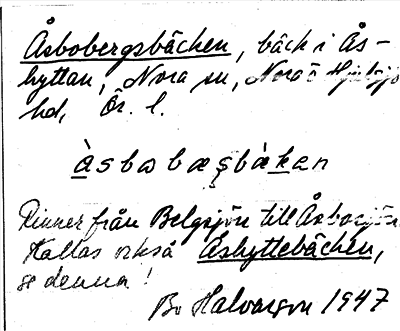 Åsbobergsbäcken, bäck i Ås-
hyttan, Nora sn, Nora o Hjulsjö
hd, Ör. l.
àsbobæşbàkan
Rinner från Belgsjön till Åsbosjön.
Kallas också Åshyttebäcken,
se denna!
Bo Halvarson 1947